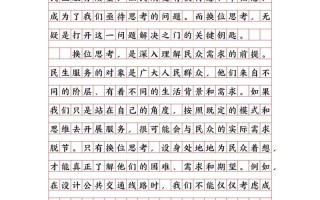 成为了我们亟待思考的问题。而换位思考，无
疑是打开这一问题解决之门的关键钥匙。
换位思考，是深入理解民众需求的前提。
民生服务的对象是广大人民群众，他们来自不
同的阶层、有着不同的生活背景和需求。如果
我们只是站在自己的角度，按照既定的模式和
思维去开展服务，很可能会与民众的实际需求
脱节。只有换位思考，设身处地地为民众着想，
才能真正了解他们的困难、需求和期望。例如，
在设计公共交通线路时，我们不能仅仅考虑成